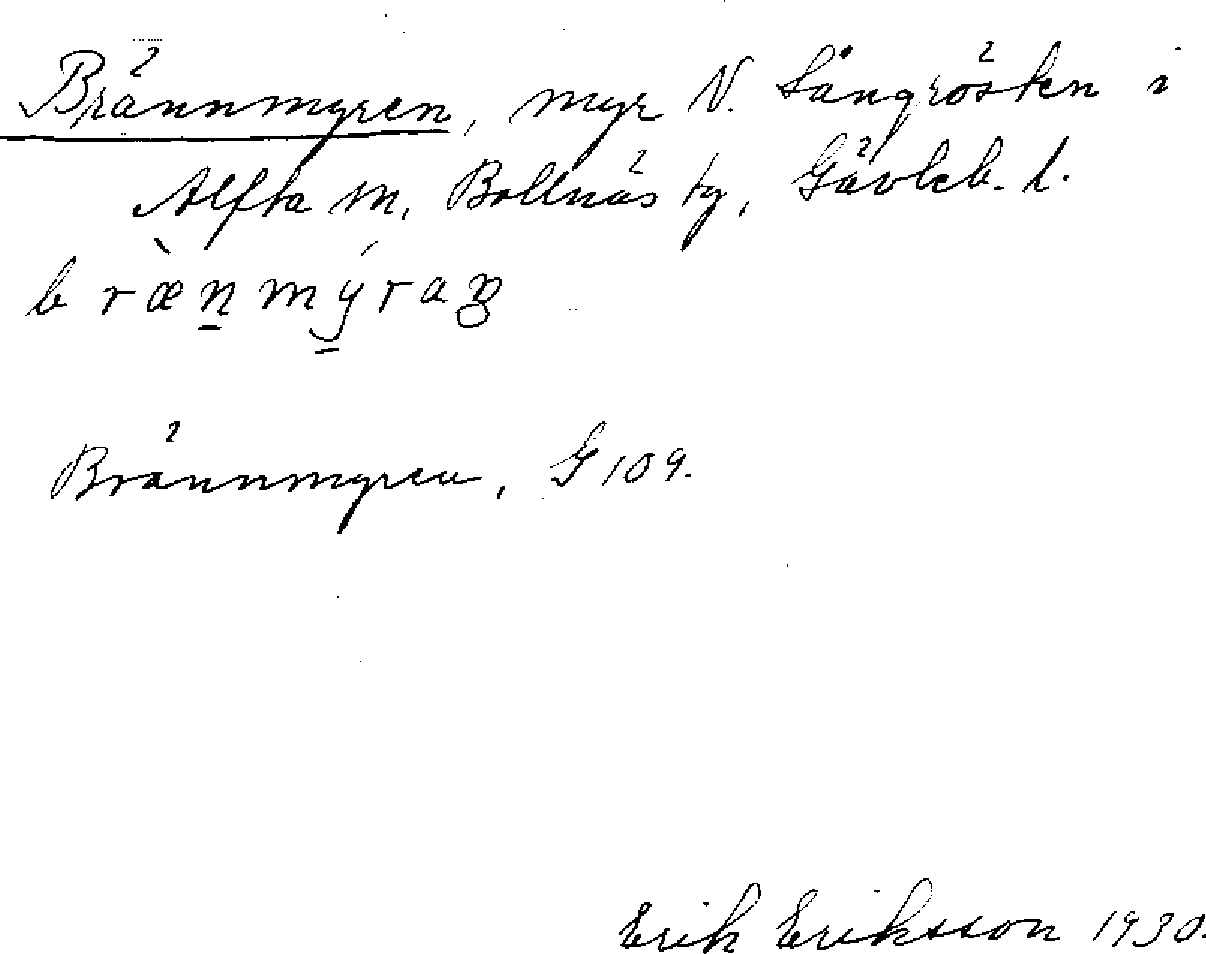 Brännmyren, myr N. Långrösten i
Alfta sn, Bollnäs tg, Gävleb. l.
Brännmyren, G 109.
Erik Eriksson 1930.